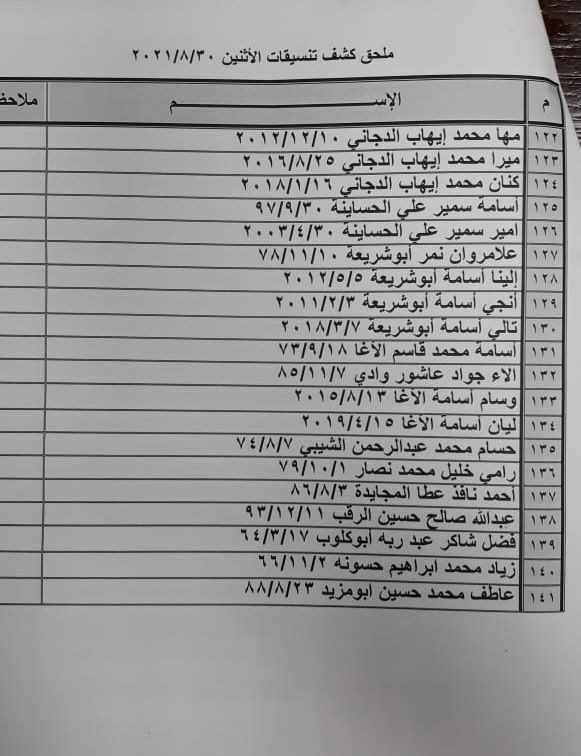 ملحق كشف تنسيقات الأثنين ٢٠٢١/٨/٣٠
م الإســـــم ملاحظ
١٢٢ مها محمد إيهاب الدجاني ٢٠١٢/١٢/١٠
١٢٣ ميرا محمد إيهاب الدجاني ٢٠١٦/٨/٢٥
١٢٤ كنان محمد إيهاب الدجاني ٢٠١٨/١/١٦
١٢٥ أسامة سمير علي الحساينة ٩٧/٩/٣٠
١٢٦ امير سمير علي الحساينة ٢٠٠٣/٤/٣٠
١٢٧ علامروان نمر أبوشريعة ٧٨/١١/١٠
١٢٨ إلينا أسامة أبوشريعة ٢٠١٢/٥/٥
١٢٩ أنجي أسامة أبوشريعة ٢٠١١/٢/٣
١٣٠ تالي أسامة أبوشريعة ٢٠١٨/٣/٧
١٣١ أسامة محمد قاسم الأغا ٧٣/٩/١٨
١٣٢ الاء جواد عاشور وادي ٨٥/١١/٧
١٣٣ وسام أسامة الأغا ٢٠١٥/٨/١٣
١٣٤ ليان أسامة الأغا ٢٠١٩/٤/١٥
١٣٥ حسام محمد عبدالرحمن الشيبي ٧٤/٨/٧
١٣٦ رامي خليل محمد نصار ٧٩/١٠/١
١٣٧ أحمد نافذ عطا المجايدة ٨٦/٨/٣
١٣٨ عبدالله صالح حسين الرقب ٩٣/١٢/١١
١٣٩ فضل شاكر عبد ربه أبوكلوب ٦٤/٣/١٧
١٤٠ زياد محمد ابراهيم حسونه ٦٦/١١/٢
١٤١ عاطف محمد حسين ابومزيد ٨٨/٨/٢٣